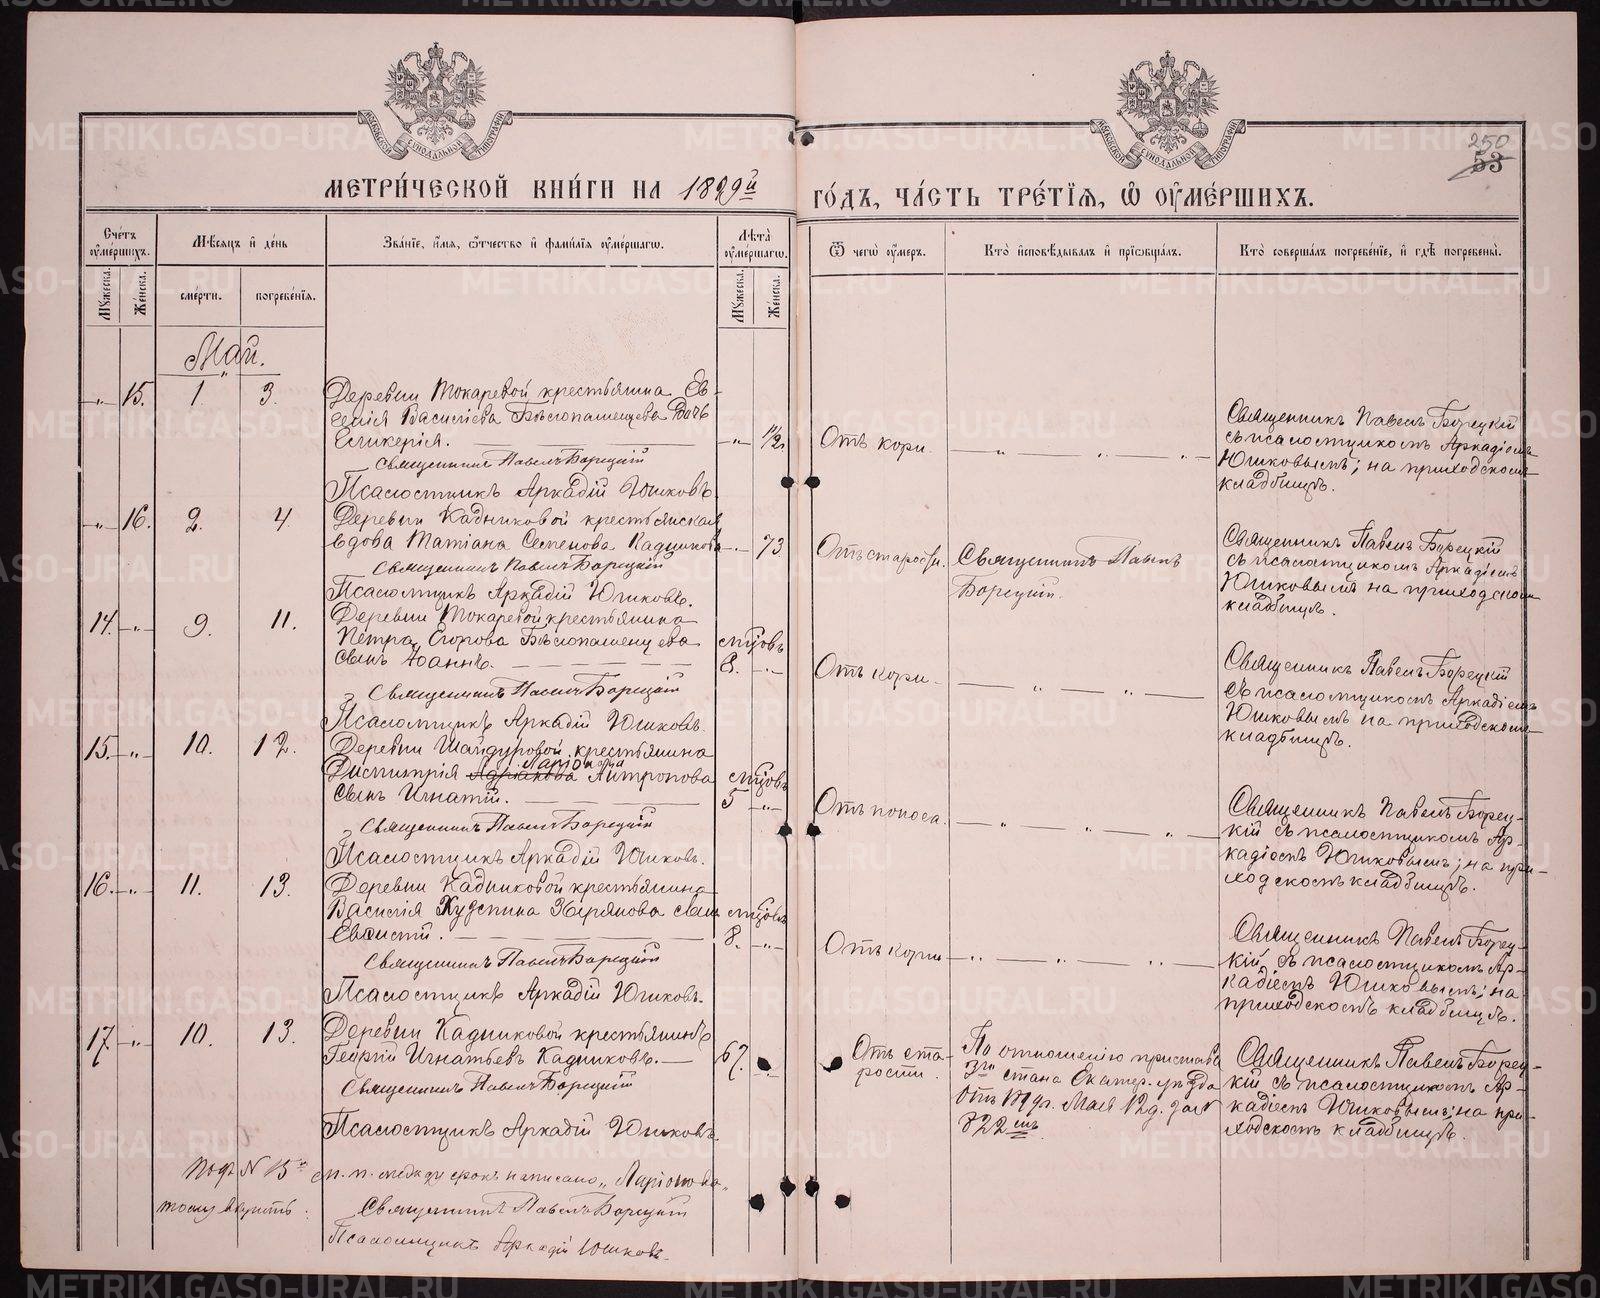 250
53
МЕТРИ́ЧЕСКОЙ КНИ́ГИ НА 1899й ГО́ДЪ, ЧА́СТЬ ТРЕ́ТІЯ, Ѡ ОУМЕ́РШИХЪ.
Сче́тъ оумершихъ.
Мѣсяцъ и де́нь
Зва́ніе, и́мя, ѻтчество и фами́лія оуме́ршагѡ.
Лѣта̀ оуме́ршагѡ.
Ѿ чегѡ̀ оумеръ.
Кто̀ исповѣ́дывалъ и пріѡбща́лъ.
Кто̀ соверша́лъ погребе́ніе, и гдѣ̀ погребены̀.
Мꙋжеска.
Же́нска.
сме́рти.
погребе́нія.
Мꙋжеска.
Же́нска.
Май.
„ 15. 1. 3.
Деревни Токаревой крестьянина Ев-
генія Васильева Бѣлопашенцева дочь
Гликерія. „ 1½.
Священникъ Павелъ Борецкій
Псаломщикъ Аркадій Юшковъ.
Отъ кори.
Священникъ Павелъ Борецкій
съ псаломщикомъ Аркадіемъ
Юшковымъ; на приходскомъ
кладбищѣ.
„ 16. 2. 4.
Деревни Кадниковой крестьянская
вдова Татіана Семенова Кадникова „ 73
Священникъ Павелъ Борецкій
Псаломщикъ Аркадій Юшковъ.
Отъ старости.
Священникъ Павелъ
Борецкій.
Священникъ Павелъ Борецкій
съ псаломщикомъ Аркадіемъ
Юшковымъ на приходскомъ
кладбищѣ.
14. „ 9. 11.
Деревни Токаревой крестьянина
Петра Егорова Бѣлопашенцева
сынъ Іоаннъ. мцовъ 8. „
Священникъ Павелъ Борецкій
Псаломщикъ Аркадій Юшковъ.
Отъ кори
Священникъ Павелъ Борецкій
съ псаломщикомъ Аркадіемъ
Юшковымъ на приходскомъ
кладбищѣ.
15. „ 10. 12.
Деревни Шайдуровой крестьянина
Ларіонова
Димитрія Адріанова Антропова
сынъ Игнатій. мцовъ 5 „
Священникъ Павелъ Борецкій
Псаломщикъ Аркадій Юшковъ.
Отъ поноса.
Священникъ Павелъ Борец-
кій съ псаломщикомъ Ар-
кадіемъ Юшковымъ; на при-
ходскомъ кладбищѣ.
16. „ 11. 13.
Деревни Кадниковой крестьянина
Василія Зырянова сынъ
мцовъ 8. „
Священникъ Павелъ Борецкій
Псаломщикъ Аркадій Юшковъ.
Отъ кори
Священникъ Павелъ Борец-
кій съ псаломщикомъ Ар-
кадіемъ Юшковымъ; на
приходскомъ кладбищѣ.
17. „ 10. 13.
Деревни Кадниковой крестьянинъ
Георгій Игнатьевъ Кадниковъ. 67. „
Священникъ Павелъ Борецкій
Псаломщикъ Аркадій Юшковъ.
Отъ ста-
рости.
По отношенію пристава
3го стана Екатер. уѣзда
отъ 1899г. Мая 12д. за №
822мъ
Священникъ Павелъ Борец-
кій съ псаломщикомъ Ар-
кадіемъ Юшковымъ; на при-
ходскомъ кладбищѣ.
Подъ № 15м м. п. между строкъ написано „Ларіонова“
тому вѣрить:
Священникъ Павелъ Борецкій
Псаломщикъ Аркадій Юшковъ.
METRIKI.GASO-URAL.RU